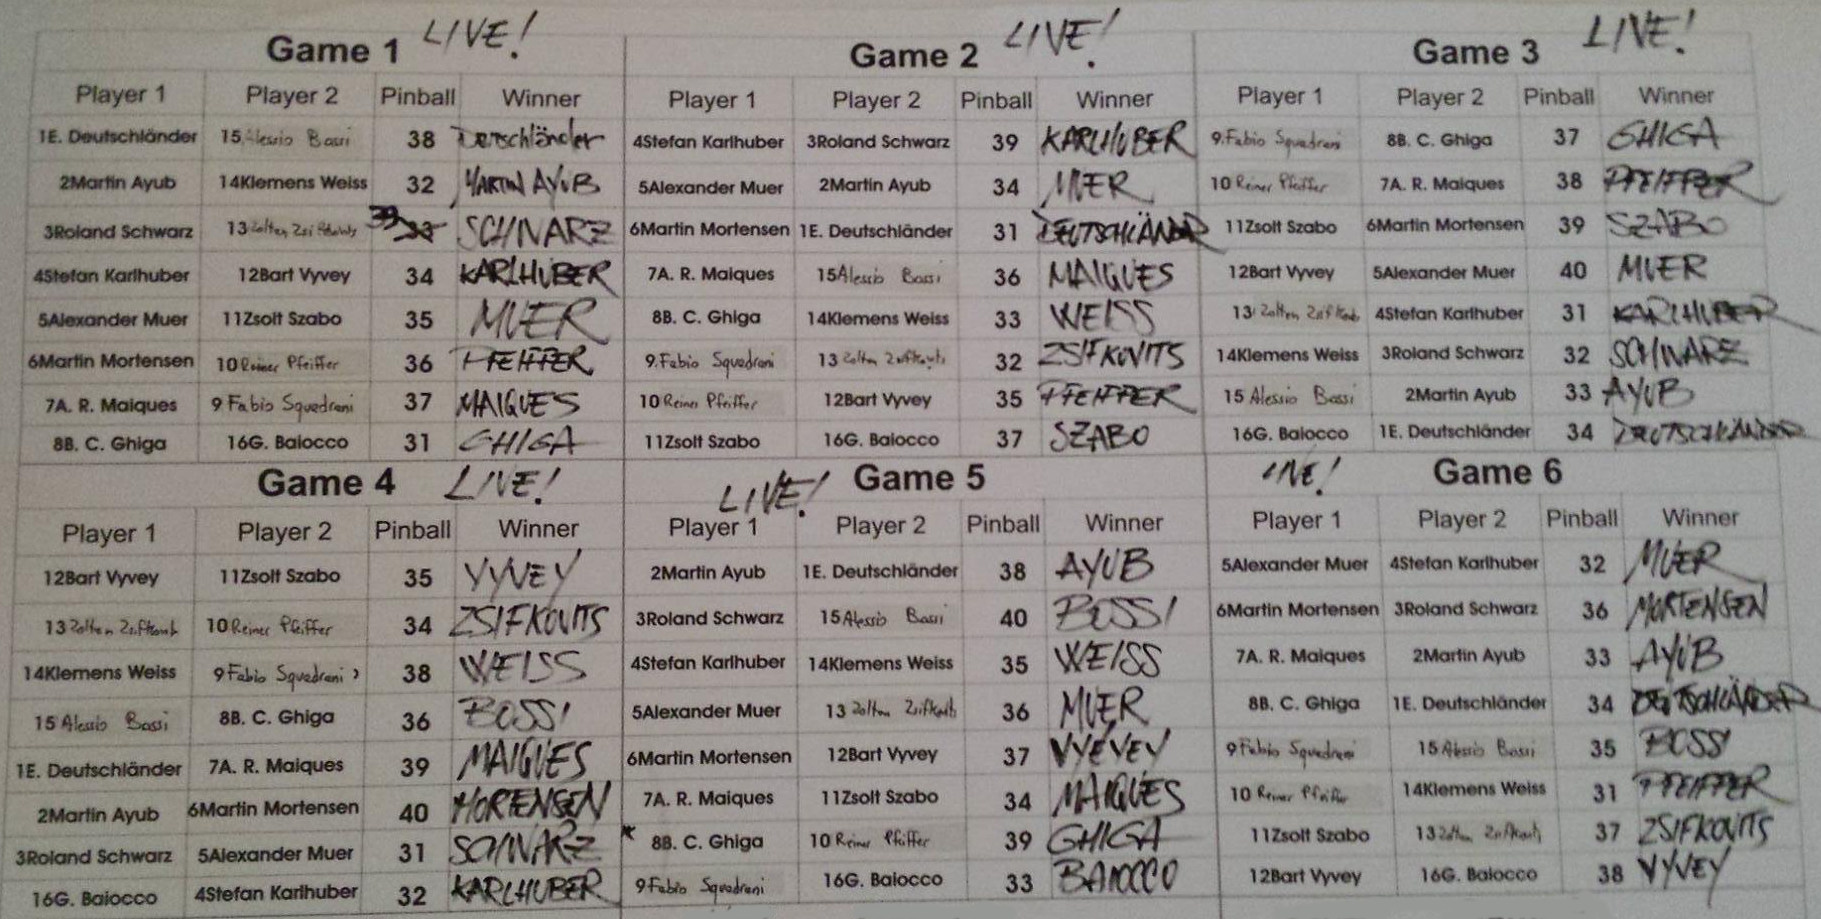 Game 1 LIVE!
Player 1 Player 2 Pinball Winner
1E. Deutschländer 15 Alessio Bossi 38 Deutschländer
2Martin Ayub 14Klemens Weiss 32 MARTIN AYUB
3Roland Schwarz 13 Zoltan 39 33 SCHWARZ
4Stefan Karlhuber 12Bart Vyvey 34 KARLHUBER
5Alexander Muer 11Zsolt Szabo 35 MUER
6Martin Mortensen 10 Reiner Pfeiffer 36 PFEIFFER
7A. R. Maiques 9 Fabio Squedrani 37 MAIQUES
8B. C. Ghiga 16G. Baiocco 31 GHIGA
Game 2 LIVE!
Player 1 Player 2 Pinball Winner
4Stefan Karlhuber 3Roland Schwarz 39 KARLHUBER
5Alexander Muer 2Martin Ayub 34 MUER
6Martin Mortensen 1E. Deutschländer 31 DEUTSCHLÄNDER
7A. R. Maiques 15 Alessio Bossi 36 MAIQUES
8B. C. Ghiga 14Klemens Weiss 33 WEISS
9 Fabio Squedrani 13 Zoltan Zsifkovits 32 ZSIFKOVITS
10 Reiner Pfeiffer 12Bart Vyvey 35 PFEIFFER
11Zsolt Szabo 16G. Baiocco 37 SZABO
Game 3 LIVE!
Player 1 Player 2 Pinball Winner
9 Fabio Squedrani 8B. C. Ghiga 37 GHIGA
10 Reiner Pfeiffer 7A. R. Maiques 38 PFEIFFER
11Zsolt Szabo 6Martin Mortensen 39 SZABO
12Bart Vyvey 5Alexander Muer 40 MUER
13 Zoltan Zsifkovits 4Stefan Karlhuber 31 KARLHUBER
14Klemens Weiss 3Roland Schwarz 32 SCHWARZ
15 Alessio Bossi 2Martin Ayub 33 AYUB
16G. Baiocco 1E. Deutschländer 34 DEUTSCHLÄNDER
Game 4 LIVE!
Player 1 Player 2 Pinball Winner
12Bart Vyvey 11Zsolt Szabo 35 VYVEY
13 Zoltan Zsifkovits 10 Reiner Pfeiffer 34 ZSIFKOVITS
14Klemens Weiss 9 Fabio Squedrani 38 WEISS
15 Alessio Bossi 8B. C. Ghiga 36 BOSSI
1E. Deutschländer 7A. R. Maiques 39 MAIQUES
2Martin Ayub 6Martin Mortensen 40 MORTENSEN
3Roland Schwarz 5Alexander Muer 31 SCHWARZ
16G. Baiocco 4Stefan Karlhuber 32 KARLHUBER
LIVE! Game 5
Player 1 Player 2 Pinball Winner
2Martin Ayub 1E. Deutschländer 38 AYUB
3Roland Schwarz 15 Alessio Bossi 40 BOSSI
4Stefan Karlhuber 14Klemens Weiss 35 WEISS
5Alexander Muer 13 Zoltan Zsifkovits 36 MUER
6Martin Mortensen 12Bart Vyvey 37 VYEVEY
7A. R. Maiques 11Zsolt Szabo 34 MAIQUES
8B. C. Ghiga 10 Reiner Pfeiffer 39 GHIGA
9 Fabio Squedrani 16G. Baiocco 33 BAIOCCO
LIVE! Game 6
Player 1 Player 2 Pinball Winner
5Alexander Muer 4Stefan Karlhuber 32 MUER
6Martin Mortensen 3Roland Schwarz 36 MORTENSEN
7A. R. Maiques 2Martin Ayub 33 AYUB
8B. C. Ghiga 1E. Deutschländer 34 DEUTSCHLÄNDER
9 Fabio Squedrani 15 Alessio Bossi 35 BOSSI
10 Reiner Pfeiffer 14Klemens Weiss 31 PFEIFFER
11Zsolt Szabo 13 Zoltan Zsifkovits 37 ZSIFKOVITS
12Bart Vyvey 16G. Baiocco 38 VYVEY